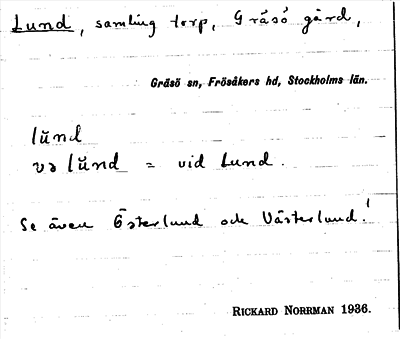 Lund, samling torp, Gräsö gård,
Gräsö sn, Frösåkers hd, Stockholms län.
lŭnd
və lŭnd = vid Lund.
Se även Österlund och Västerlund!
RICKARD NORRMAN 1936.